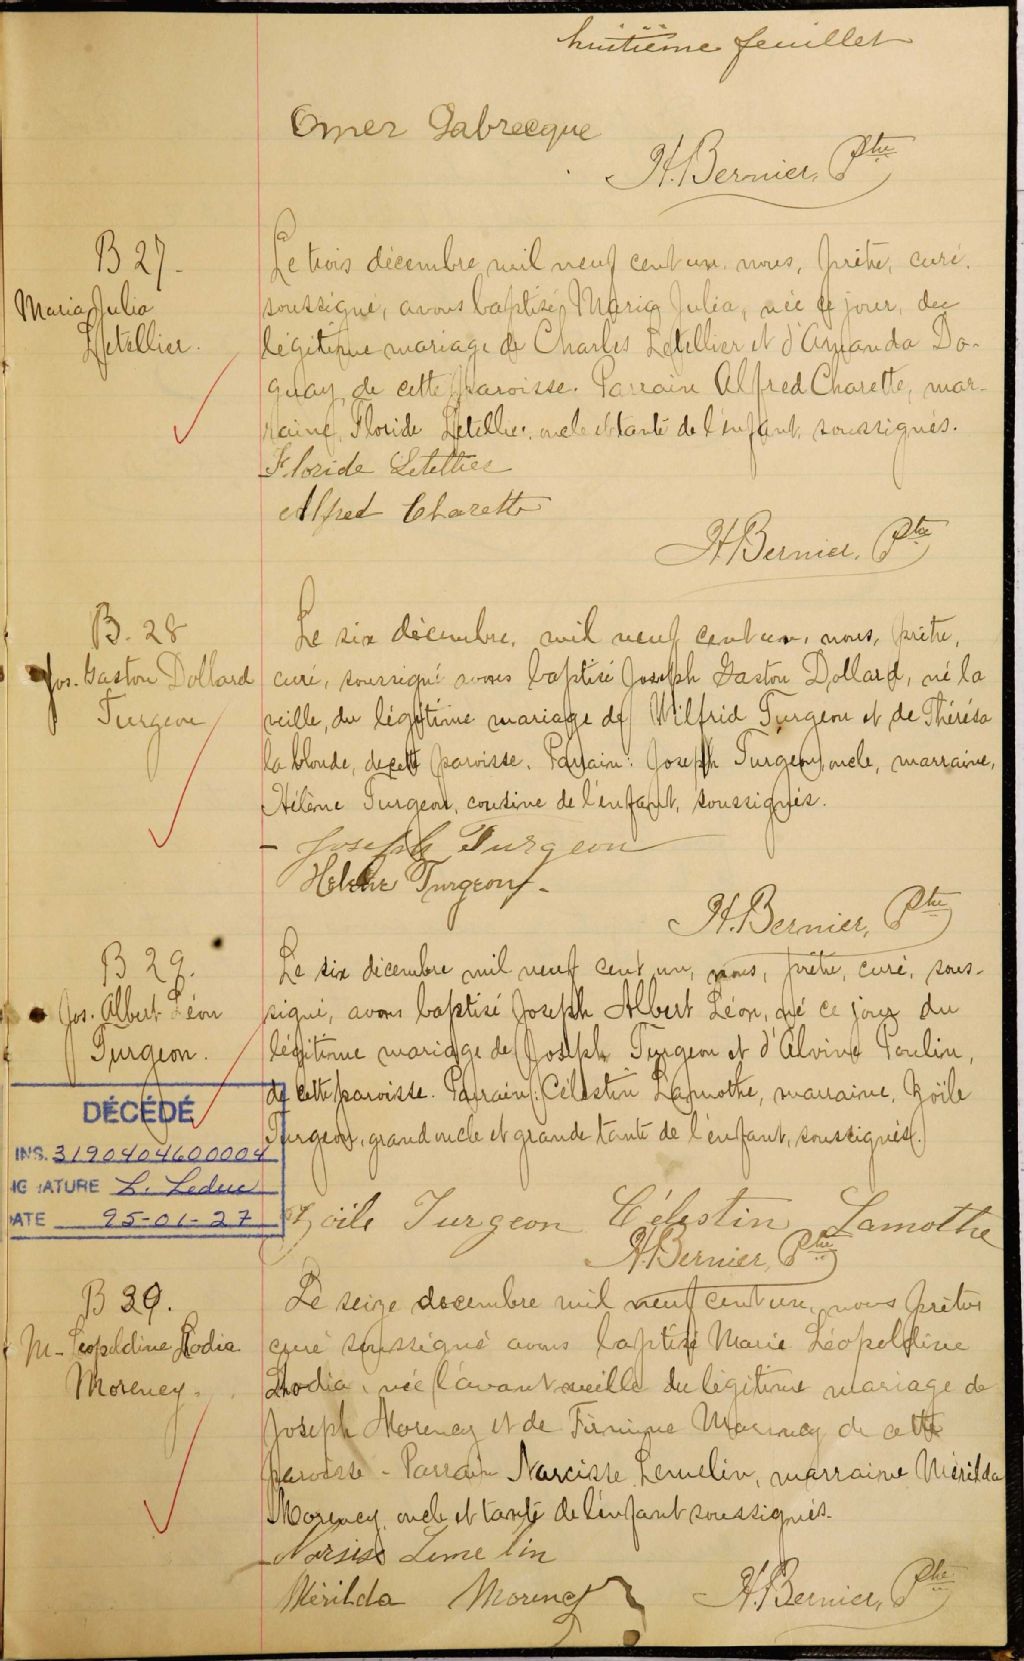 huitième feuillet
Omer Labrecque
H. Bernier, Ptre
B 27.
Maria Julia
Letellier.
Le trois décembre mil neuf cent un, nous, prêtre, curé,
soussigné, avons baptisé Maria Julia, née ce jour, du
légitime mariage de Charles Letellier et d'Amanda Do-
guay de cette paroisse. Parrain Alfred Charette, mar-
raine, Floride Letellier, oncle et tante de l'enfant, soussignés.
Floride Letellier
Alfred Charette
H. Bernier, Ptre
B. 28
Jos. Gaston Dollard
Turgeon
Le six décembre, mil neuf cent un, nous, prêtre,
curé, soussigné avons baptisé Joseph Gaston Dollard, né la
veille, du légitime mariage de Wilfrid Turgeon et de Thérésa
la blonde, de cette paroisse. Parrain: Joseph Turgeon, oncle, marraine,
Hélène Turgeon, cousine de l'enfant, soussignés.
Joseph Turgeon
Helene Turgeon.
H. Bernier, Ptre
B 29.
Jos. Albert Léon
Turgeon.
Le six décembre mil neuf cent un, nous, prêtre, curé, sous-
signé, avons baptisé Joseph Albert Léon, né ce jour du
légitime mariage de Joseph Turgeon et d'Alvine Poulin,
de cette paroisse. Parrain: Célestin Lamothe, marraine, Zoïle
Turgeon, grand oncle et grande tante de l'enfant, soussignés.
DÉCÉDÉ
INS. 3190404600004
SIGNATURE L. Leduc
DATE 95-01-27
Zoïle Turgeon Célestin Lamothe
H. Bernier, Ptre
B 30.
M- Léopoldine
Morency.
Le seize décembre mil neuf cent un, nous prêtre
curé soussigné avons baptisé Marie Léopoldine
née l'avant veille du légitime mariage de
Joseph Morency et de Morency de cette
paroisse - Parrain Narcisse Lemelin, marraine Mérilda
Morency, oncle et tante de l'enfant soussignés.
Narsise Lemelin
Mérilda Morency
H. Bernier, Ptre